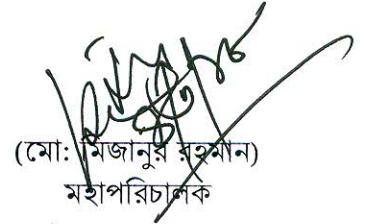 (মো: মিজানুর রহমান)
মহাপরিচালক